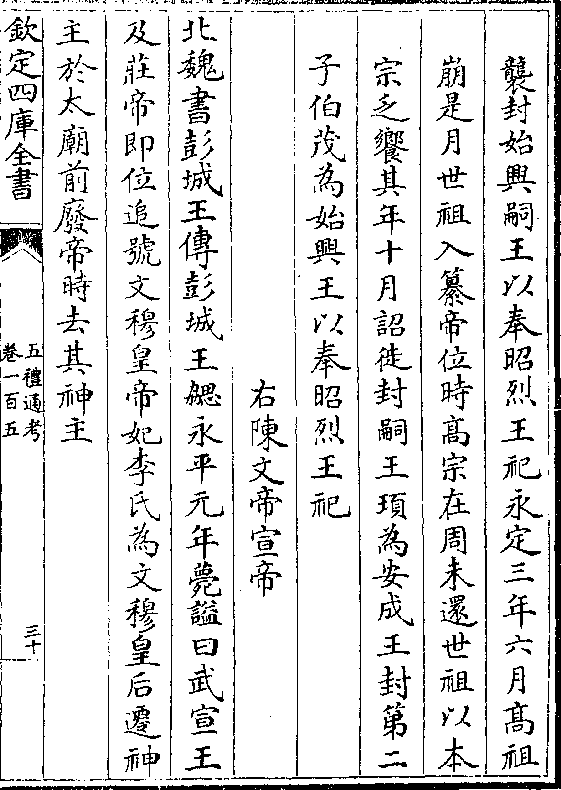 襲封始興嗣王以奉昭烈王祀永定三年六月髙祖
崩是月世祖入纂帝位時髙宗在周未還世祖以本
宗乏饗其年十月詔徙封嗣王頊為安成王封第二
子伯茂為始興王以奉昭烈王祀
右陳文帝宣帝
北魏書彭城王傳彭城王勰永平元年薨諡曰武宣王
及莊帝即位追號文穆皇帝妃李氏為文穆皇后遷神
主於太廟前廢帝時去其神主
欽定四庫全書
五禮通考
卷一百五
三十